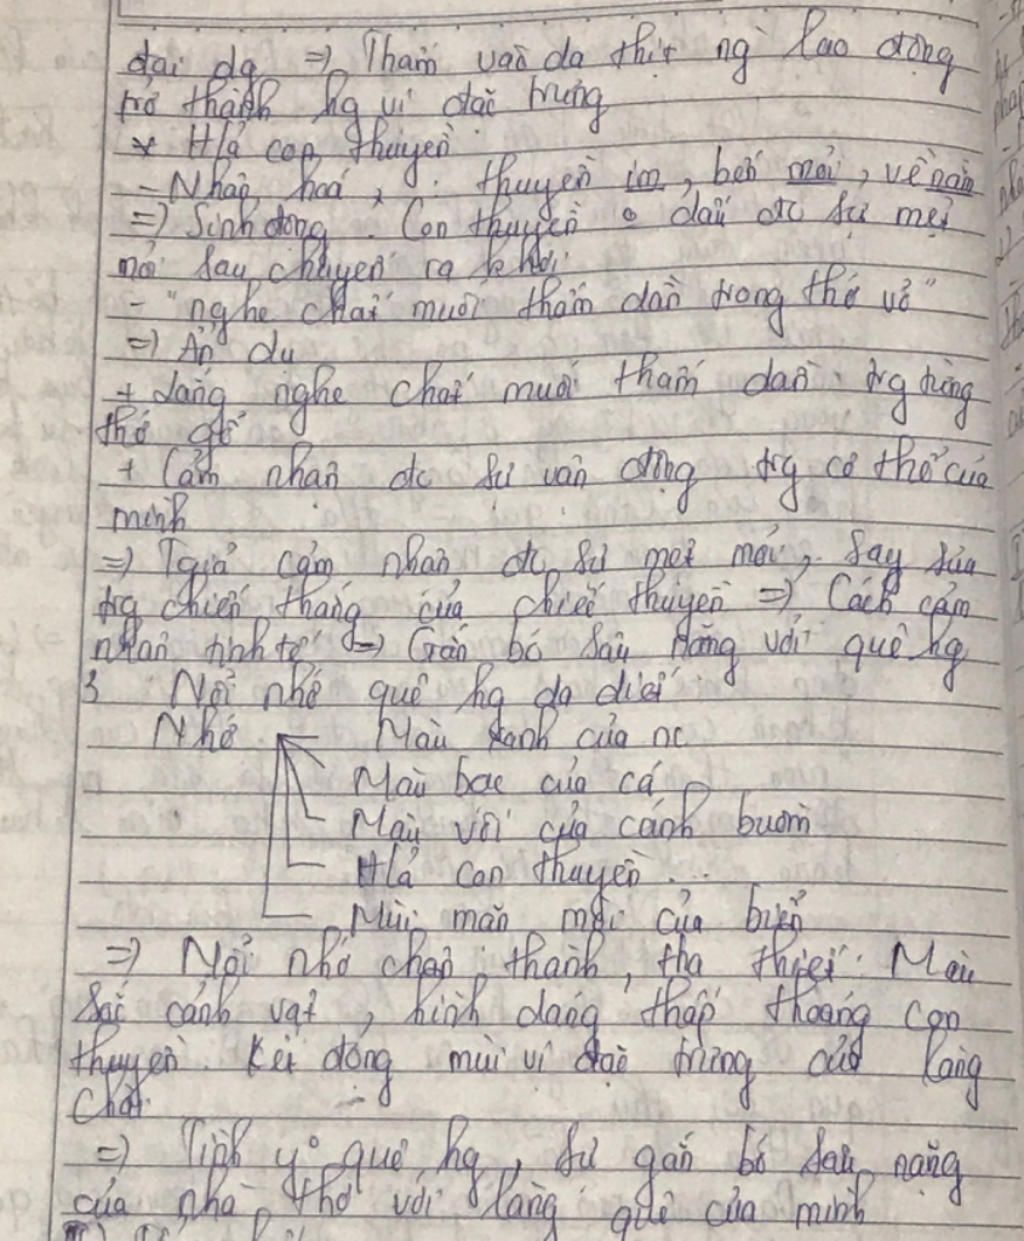 đại dg => Thấm vào da thịt ng lao động
trở thành hg vị đặc trưng
* H/ả con thuyền
- Nhân hoá, : thuyền im, bến mỏi, về nằm
=> Sinh động. Con thuyền dấu đc sự mệt
mỏi sau chuyến ra khơi
- "nghe chất muối thấm dần trong thớ vỏ"
=> Ẩn dụ
+ lắng nghe chất muối thấm dần trg từng
thớ gỗ
+ Cảm nhận đc sự vận động trg cơ thể của
mình
=> Tgiả cảm nhận đc sự mệt mỏi, say sưa
trg chiến thắng của chiếc thuyền => Cách cảm
nhận tinh tế => Gắn bó sâu nặng với quê hg
3 Nỗi nhớ quê hg da diết
Nhớ Màu xanh của nc
Màu bạc của cá
Màu vôi của cánh buồm
H/ả con thuyền
Mùi mặn mòi của biển
=> Nỗi nhớ chân thành, tha thiết. Màu
sắc cảnh vật, hình dáng thấp thoáng con
thuyền. Kết đông mùi vị đặc trưng của làng
chài.
=> Tình y quê hg, sự gắn bó sâu nặng
của nhà thơ với làng quê của mình